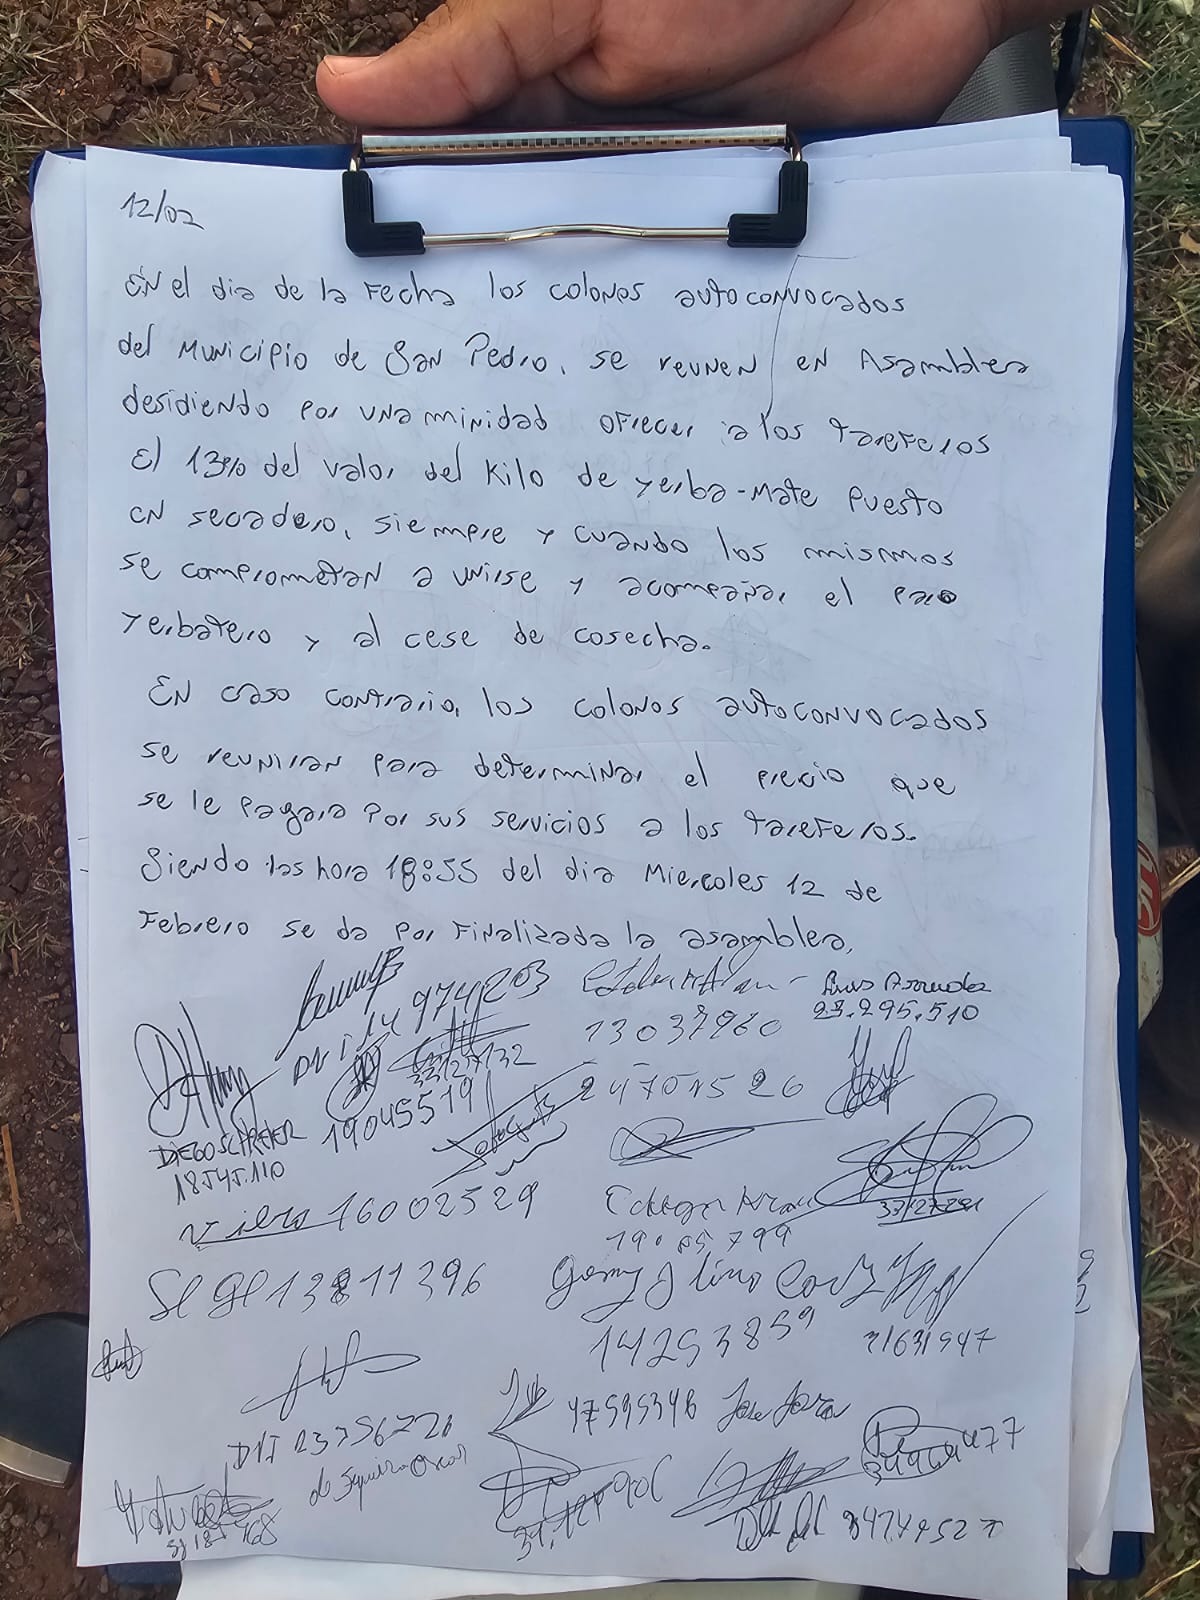 12/02
EN el dia de la Fecha los colonos autoconvocados
del Municipio de San Pedro, se reunen en Asamblea
desidiendo por unaminidad ofrecer a los tareferos
El 13% del valor del Kilo de yerba-Mate Puesto
en secadero, siempre y cuando los mismos
se comprometan a unirse y acompañar el paro
yerbatero y al cese de cosecha.
En caso contrario, los colonos autoconvocados
se reuniran para determinar el precio que
se le pagara por sus servicios a los tareferos.
Siendo las hora 18:55 del dia Miercoles 12 de
Febrero se da por Finalizada la asamblea,
DNI 14974203
13037960
23.295.510
33127132
19045519
24701526
18.545.110
16002529
13811396
14253859
31631947
DNI 23756220
de Siqueira Oscar
47595346 Jose